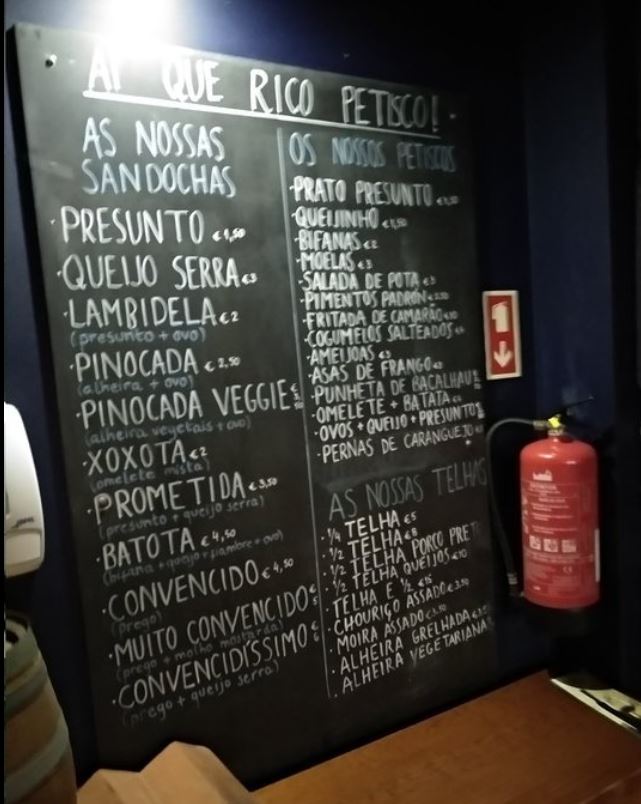 AI QUE RICO PETISCO!
AS NOSSAS
SANDOCHAS
·PRESUNTO €1,50
·QUEIJO SERRA €3
·LAMBIDELA €2
(presunto + ovo)
·PINOCADA €2,50
(alheira + ovo)
·PINOCADA VEGGIE
(alheira vegetais + ovo)
·XOXOTA €2
(omelete mista)
·PROMETIDA €3,50
(presunto + queijo serra)
·BATOTA €4,50
(bifana + queijo + fiambre + ovo)
·CONVENCIDO €4,50
(prego)
·MUITO CONVENCIDO
(prego + molho mostarda)
·CONVENCIDÍSSIMO
(prego + queijo serra)
OS NOSSOS PETISCOS
·PRATO PRESUNTO
·QUEIJINHO €1,50
·BIFANAS €2
·MOELAS €3
·SALADA DE POTA €3
·PIMENTOS PADRON
·FRITADA DE CAMARÃO €10
·COGUMELOS SALTEADOS
·AMEIJOAS
·ASAS DE FRANGO
·PUNHETA DE BACALHAU
·OMELETE + BATATA
·OVOS + QUEIJO + PRESUNTO
·PERNAS DE CARANGUEJO
AS NOSSAS TELHAS
·1/4 TELHA €5
·1/2 TELHA €8
·1/2 TELHA PORCO PRETO
·1/2 TELHA QUEIJOS €10
·TELHA E 1/2 €15
·CHOURIÇO ASSADO €3,50
·MOIRA ASSADO €3,50
·ALHEIRA GRELHADA
·ALHEIRA VEGETARIANA